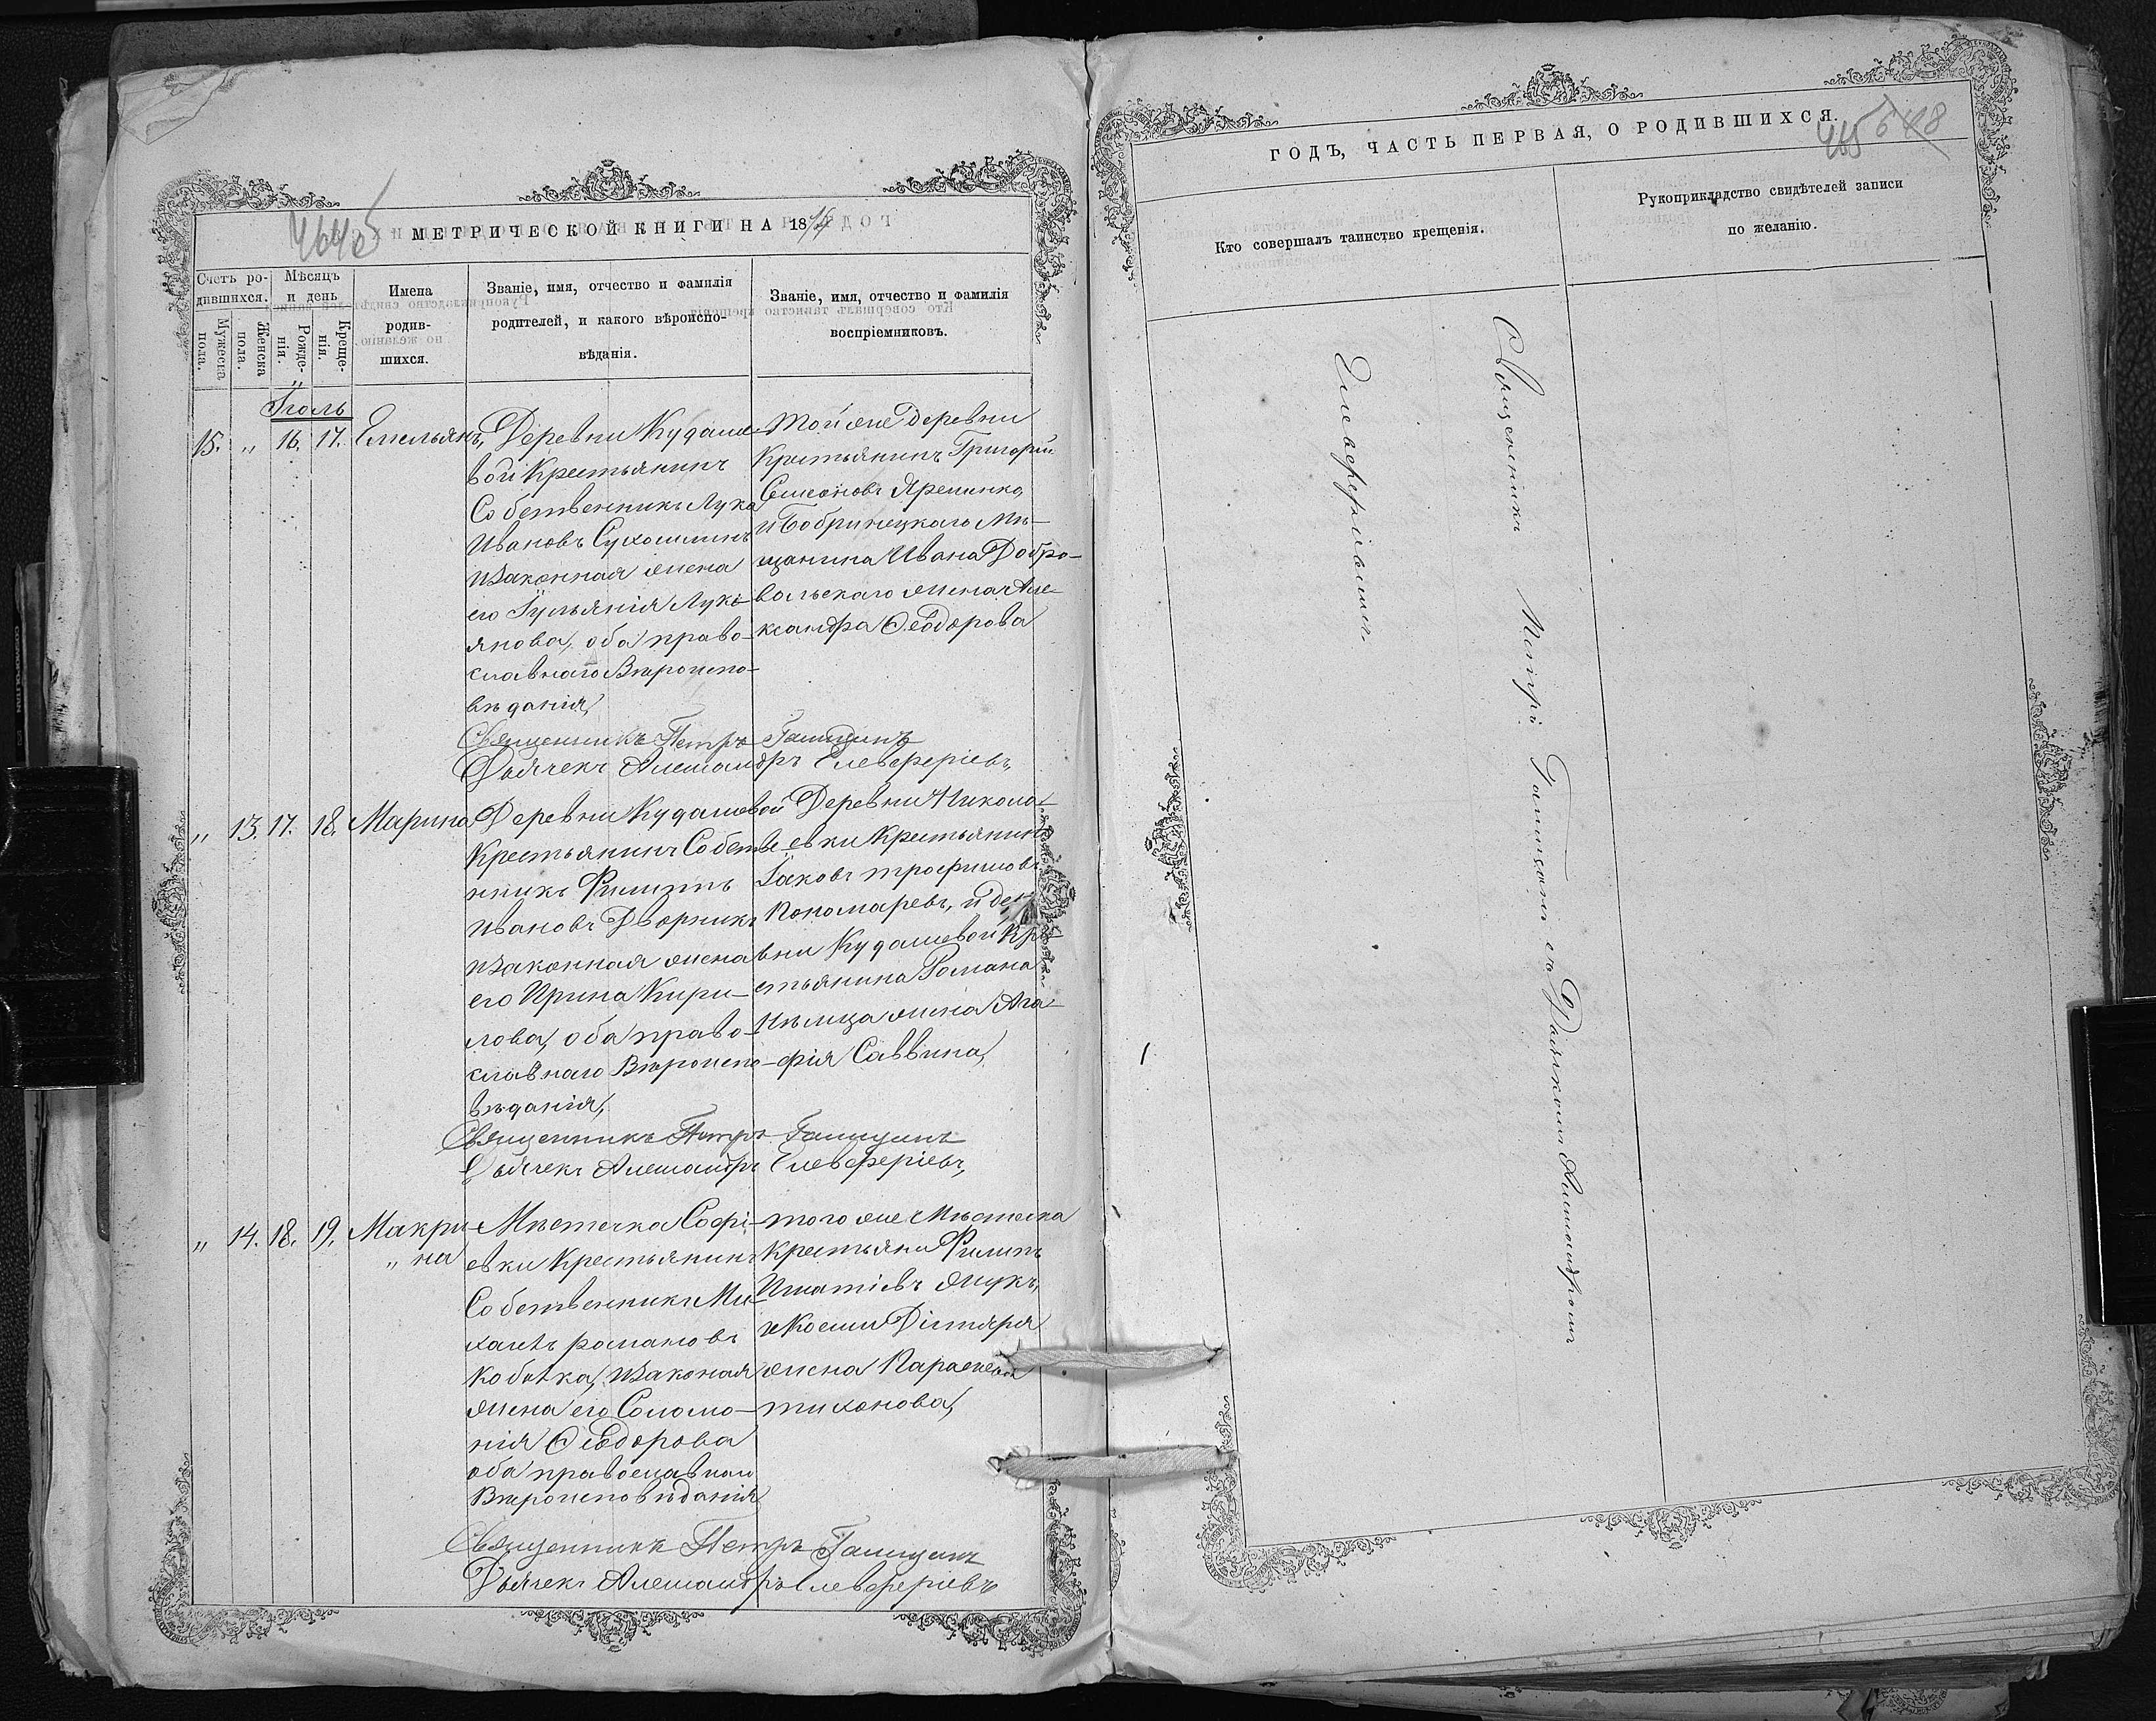 МЕТРИЧЕСКОЙ КНИГИ НА 1874
Счетъ ро-
дившихся.
Мужеска
пола.
Женска
пола.
Мѣсяцъ
и день
Рожде-
нія.
Креще-
нія.
Имена
родив-
шихся.
Званіе, имя, отчество и фамилія
родителей, и какого вѣроиспо-
вѣданія.
Званіе, имя, отчество и фамилія
воспріемниковъ.
Іюль
15. „ 16. 17. Емельянъ,
Деревни Кудаше-
вой Крестьянинъ
Собственникъ Лука
Ивановъ Сухомлинъ
изаконная жена
его Іульянія Лукі-
янова, оба право-
славнаго Вѣроиспо-
вѣданія,
Той же Деревни
Крестьянинъ Григорій
Семеновъ Яременко,
и Бобринецкаго Мѣ-
щанина Ивана Добро-
вольскаго жена Але-
ксандра Ѳеодорова
Священникъ Петръ Ганицынъ
Дьячекъ Александръ Елевферіевъ,
„ 13. 17. 18. Марина
Деревни Кудашевой
Крестьянинъ Собстве-
нникъ Филиппъ
Ивановъ Дворникъ
изаконная жена
его Ирина Кири-
лова, оба право-
славнаго Вѣроиспо-
вѣданія,
Деревни Никола-
евки Крестьянинъ
Іаковъ трофимовъ
Пономаревъ, и де-
вни Кудашевой Кре-
стьянина Романа
Нѣмца жена Ага-
фія Саввина,
Священникъ Петръ Ганицынъ
Дьячекъ Александръ Елевферіевъ,
„ 14. 18. 19. Макри-
„ на
Мѣстечка Софі-
евки Крестьянинъ
Собственникъ Ми-
хаилъ романовъ
изаконая
жена его Соломо-
нія Ѳеодорова
оба православнаго
Вѣроисповѣданія
того же Мѣстечка
Крестьяни Филипъ
Игнатіевъ Жукъ,
и Космы Дігтяря
жена Параскева
тихонова,
Священникъ Петръ Ганицынъ
Дьячекъ Александръ Елевферіевъ
ГОДЪ, ЧАСТЬ ПЕРВАЯ, О РОДИВШИХСЯ.
465
Кто совершалъ таинство крещенія.
Рукоприкладство свидѣтелей записи
по желанію.
Священникъ Петръ Ганицынъ съ Дьячкомъ Александромъ
Елевферіевымъ